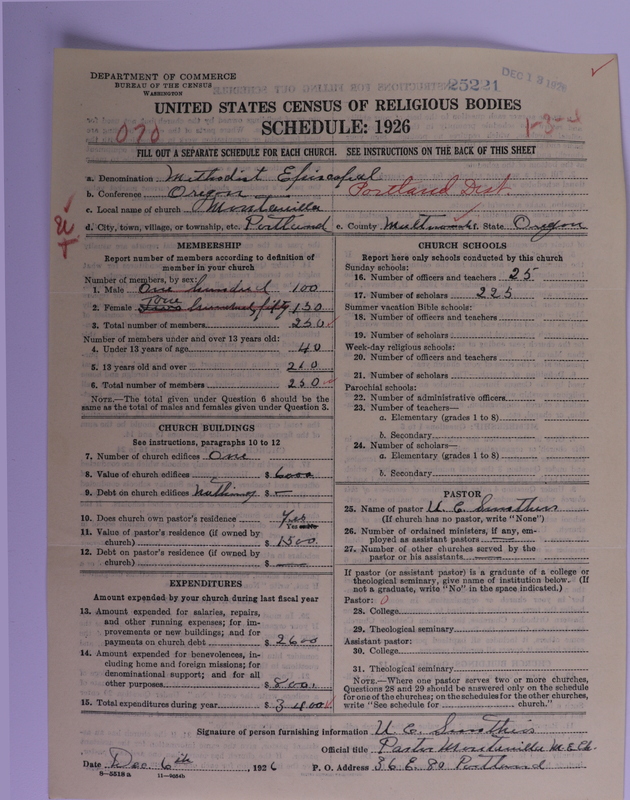 DEPARTMENT OF COMMERCE
BUREAU OF THE CENSUS
WASHINGTON
25221
DEC 13 1926
UNITED STATES CENSUS OF RELIGIOUS BODIES
SCHEDULE: 1926
070
1-3-
FILL OUT A SEPARATE SCHEDULE FOR EACH CHURCH. SEE INSTRUCTIONS ON THE BACK OF THIS SHEET
a. Denomination Methodist Episcopal
b. Conference Oregon Portland Dist.
c. Local name of church Montavilla
d. City, town, village, or township, etc. Portland e. County f. State Oregon
MEMBERSHIP
Report number of members according to definition of
member in your church
Number of members, by sex:
1. Male One hundred 100
2. Female One hundred fifty 150
3. Total number of members 250
Number of members under and over 13 years old:
4. Under 13 years of age 40
5. 13 years old and over 210
6. Total number of members 250
NOTE.—The total given under Question 6 should be
same as the total of males and females given under Question 3.
CHURCH BUILDINGS
See instructions, paragraphs 10 to 12
7. Number of church edifices One
8. Value of church edifices $ 6000
9. Debt on church edifices Nothing $ —
10. Does church own pastor's residence Yes
Yes or No
11. Value of pastor's residence (if owned by
church) $ 1500
12. Debt on pastor's residence (if owned by
church) $ —
EXPENDITURES
Amount expended by your church during last fiscal year
13. Amount expended for salaries, repairs,
and other running expenses; for im-
provements or new buildings; and for
payments on church debt $ 2600
14. Amount expended for benevolences, in-
cluding home and foreign missions; for
denominational support; and for all
other purposes $ 800
15. Total expenditures during year $ 3400
CHURCH SCHOOLS
Report here only schools conducted by this church
Sunday schools:
16. Number of officers and teachers 25
17. Number of scholars 225
Summer vacation Bible schools:
18. Number of officers and teachers
19. Number of scholars
Week-day religious schools:
20. Number of officers and teachers
21. Number of scholars
Parochial schools:
22. Number of administrative officers
23. Number of teachers—
a. Elementary (grades 1 to 8)
b. Secondary
24. Number of scholars—
a. Elementary (grades 1 to 8)
b. Secondary
PASTOR
25. Name of pastor U. E.
(If church has no pastor, write "None")
26. Number of ordained ministers, if any, em-
ployed as assistant pastors —
27. Number of other churches served by the
pastor or his assistants —
If pastor (or assistant pastor) is a graduate of a college or
theological seminary, give name of institution below. (If
not a graduate, write "No" in the space indicated.)
Pastor: 0
28. College
29. Theological seminary
Assistant pastor:
30. College
31. Theological seminary
NOTE.—Where one pastor serves two or more churches,
Questions 28 and 29 should be answered only on the schedule
for one of the churches; on the schedules for the other churches,
write "See schedule for church."
Signature of person furnishing information U. E.
Official title Pastor Montavilla M. E. Ch.
Date Dec 6th, 1926 P. O. Address 36 E. 80 Portland
8—5518 a 11—9084b